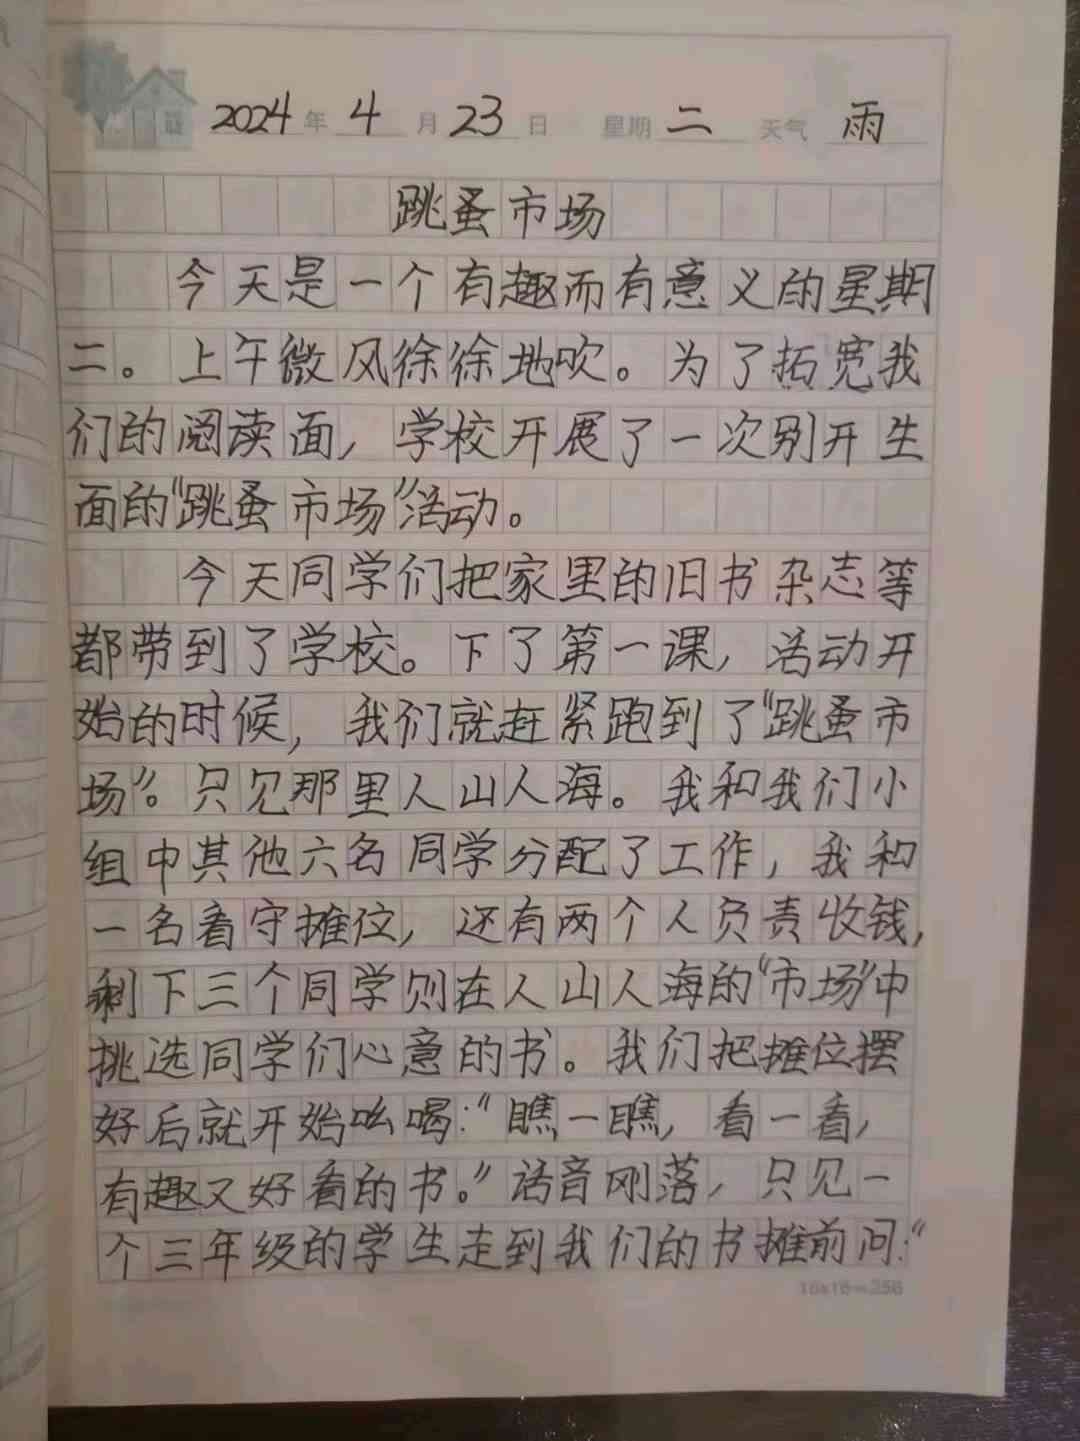 2024年 4月23日 星期二 天气 雨
跳蚤市场
今天是一个有趣而有意义的星期
二。上午微风徐徐地吹。为了拓宽我
们的阅读面，学校开展了一次别开生
面的“跳蚤市场”活动。
今天同学们把家里的旧书杂志等
都带到了学校。下了第一课，活动开
始的时候，我们就赶紧跑到了“跳蚤市
场”。只见那里人山人海。我和我们小
组中其他六名同学分配了工作，我和
一名看守摊位，还有两个人负责收钱，
剩下三个同学则在人山人海的“市场”中
挑选同学们心意的书。我们把摊位摆
好后就开始吆喝：“瞧一瞧，看一看，
有趣又好看的书。”话音刚落，只见一
个三年级的学生走到我们的书摊前问：“
16x16=256